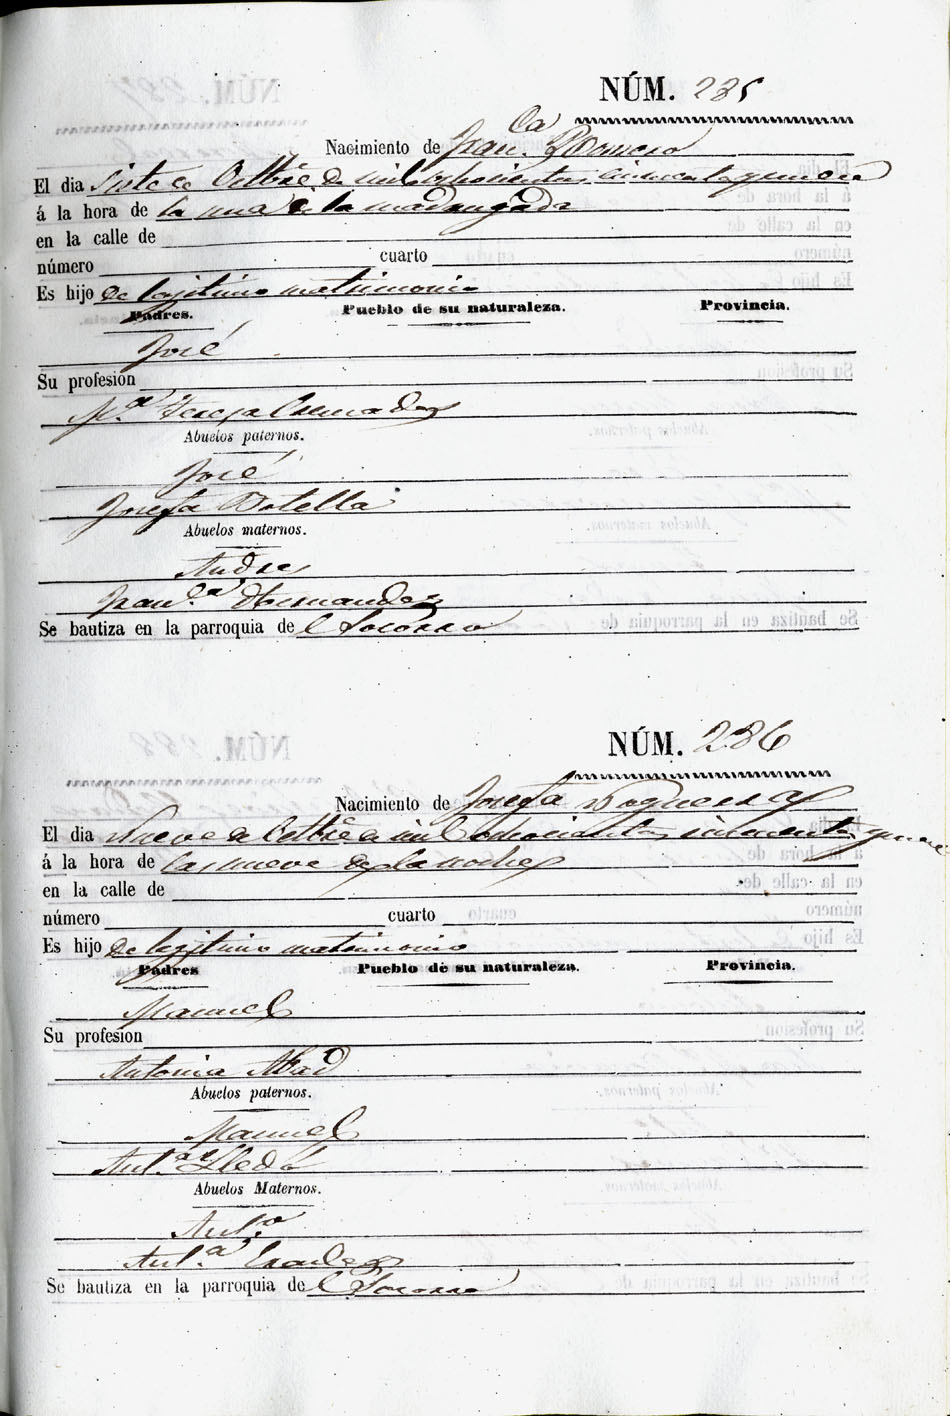 NÚM. 285
Nacimiento de Fran.ca Romero
El dia siete de Octbre de mil ochocientos cincuenta y nueve
á la hora de la una de la madrugada
en la calle de
número cuarto
Es hijo de legitimo matrimonio
Padres. Pueblo de su naturaleza. Provincia.
José
Su profesion
M.a Teresa Cremades
Abuelos paternos.
José
Josefa Botella
Abuelos maternos.
Andres
Fran.ca Hernandez
Se bautiza en la parroquia de l Socorro
NÚM. 286
Nacimiento de Josefa Noguera y
El dia nueve de Octbre de mil ochocientos cincuenta y nueve
á la hora de las nueve de la noche
en la calle de
número cuarto
Es hijo de legitimo matrimonio
Padres Pueblo de su naturaleza. Provincia.
Manuel
Su profesion
Antonia Abad
Abuelos paternos.
Manuel
Ant.a Lledó
Abuelos Maternos.
Ant.o
Ant.a
Se bautiza en la parroquia de l Socorro